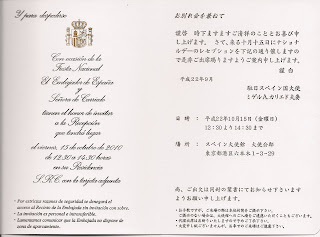 Y para despedirse
Con ocasión de la
Fiesta Nacional
El Embajador de España
y
Señora de Carriedo
tienen el honor de invitar
a la Recepción
que tendrá lugar
el viernes, 15 de octubre de 2010
de 12:30 a 14:30 horas
en su Residencia
S.R.C. con la tarjeta adjunta
- Por estrictas razones de seguridad se denegará el
acceso al Recinto de la Embajada sin invitación con sobre.
- La invitación es personal e intransferible.
- Lamentamos comunicar que la Embajada no dispone de
zona de aparcamiento.
お別れ会を兼ねて
謹啓 時下ますますご清祥のこととお喜び申
し上げます。 さて、来る十月十五日にナショナ
ルデーのレセプションを下記の通り催しますの
で是非ご出席賜りますようご案内申し上げます。
謹白
平成22年9月
駐日スペイン国大使
ミゲル A. カリエド夫妻
日時: 平成22年10月15日(金曜日)
12:30より14:30まで
場所: スペイン大使館 大使公邸
東京都港区六本木1-3-29
尚、ご出欠は同封の葉書にてお知らせ下さいます
ようお願い申し上げます。